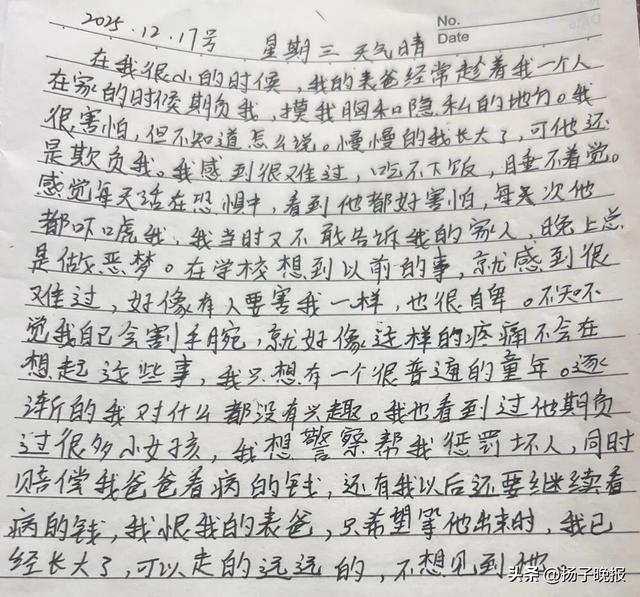 No.
Date
2025.12.17号 星期三 天气晴
在我很小的时候，我的表爸经常趁着我一个人
在家的时候期负我，摸我胸和隐私的地方。我
很害怕，但不知道怎么说。慢慢的我长大了，可他还
是欺负我。我感到很难过，吃不下饭，睡不着觉。
感觉每天活在恐惧中，看到他都好害怕，每次他
都吓唬我，我当时又不敢告诉我的家人，晚上总
是做恶梦。在学校想到以前的事，就感到很
难过，好像有人要害我一样，也很自卑。不知不
觉我自己会割手腕，就好像这样的疼痛不会在
想起这些事，我只想有一个很普通的童年。逐
渐的我对什么都没有兴趣。我也看到过他期负
过很多小女孩，我想警察帮我惩罚坏人，同时
赔偿我爸爸看病的钱，还有我以后还要继续看
病的钱，我恨我的表爸，只希望等他出来时，我已
经长大了，可以走的远远的，不想见到他。
头条@扬子晚报